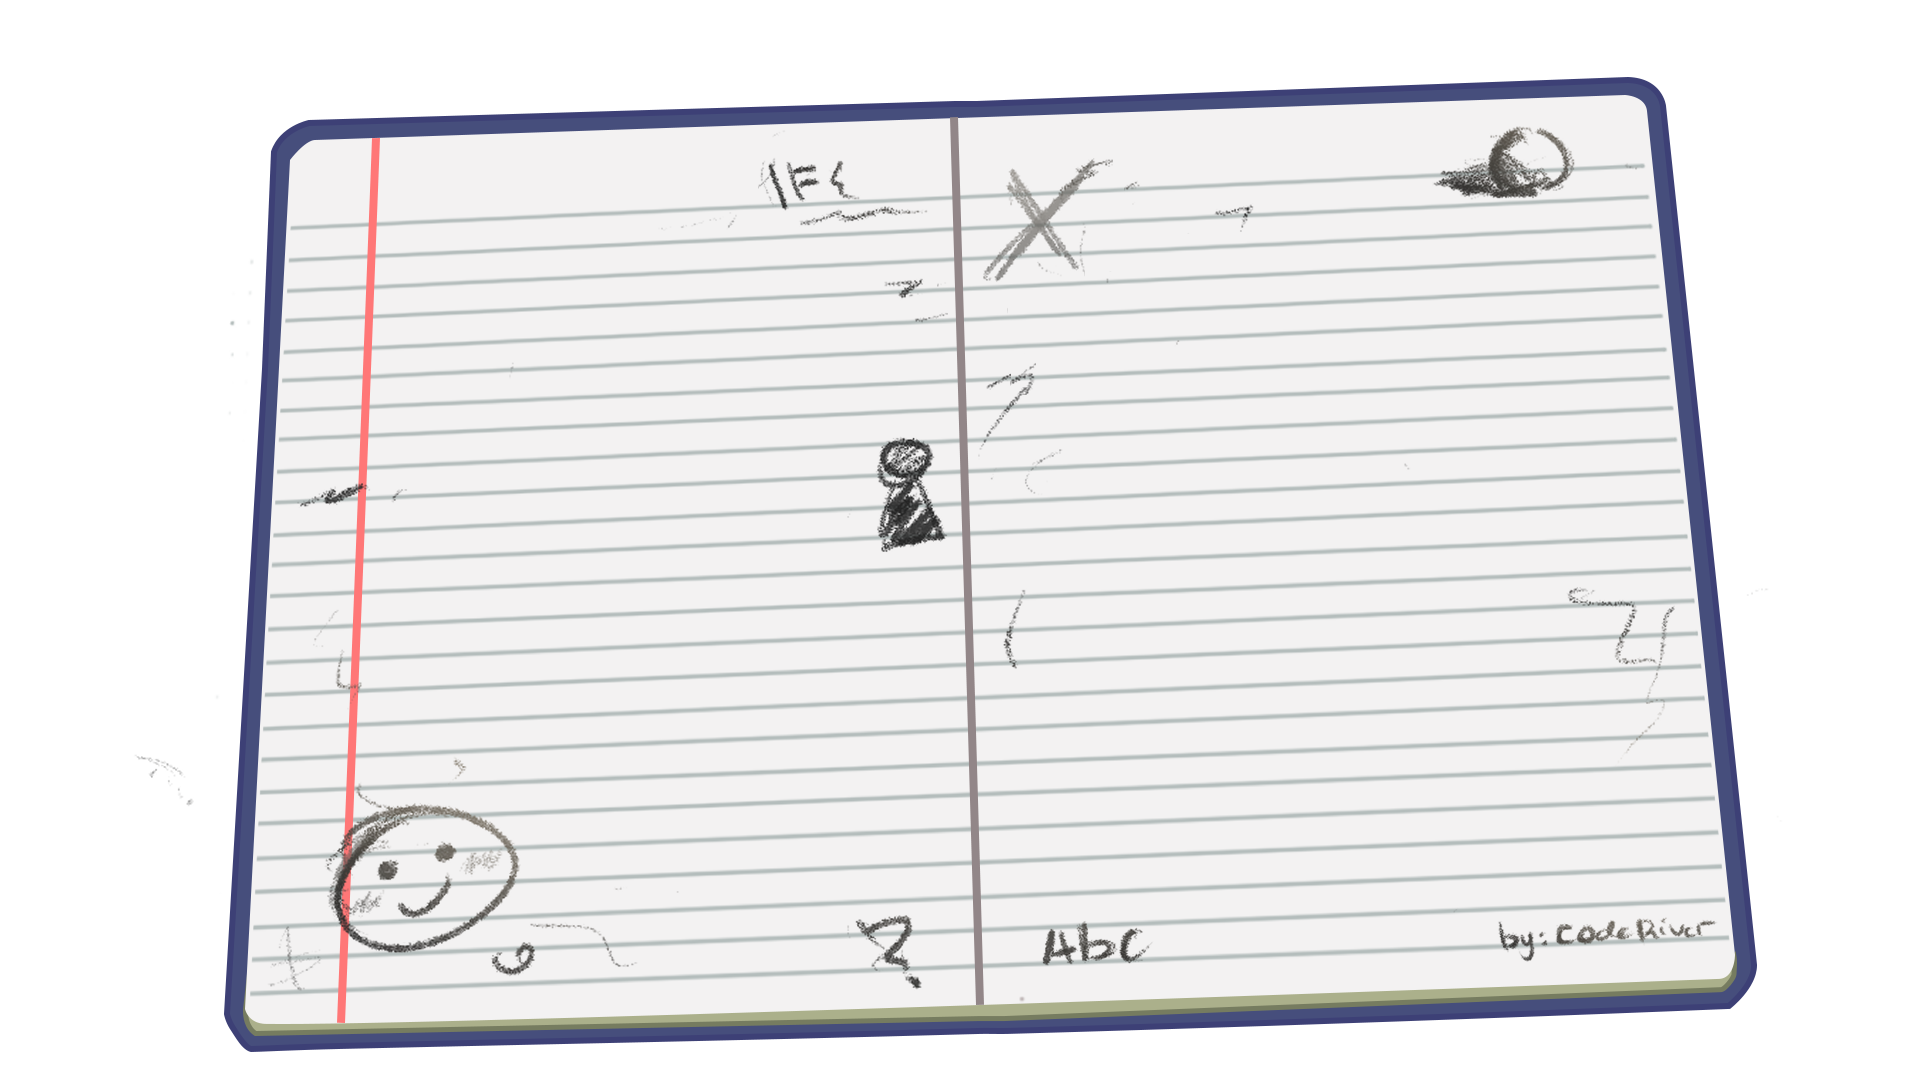 ?
Abc
by: CodeRiver